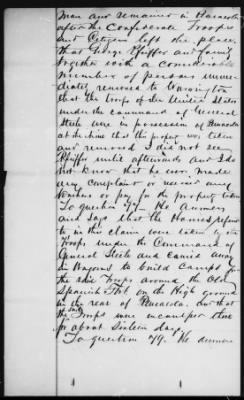 man and remained in Pensacola
after the Confederate Troops
and Citizens left the place,
that George Pfeiffer and family
together with a considerable
number of persons imme-
diately removed to Warrington
that the troops of the United States
under the command of General
Steele were in possession of Pensacola
at the time that the property was taken
and removed I did not see
Pfeiffer until afterwards and I do
not know that he ever made
any complaint or received any
vouchers or pay for the property taken
To question 47. He answers
and says that the Houses refered
to in this claim were taken by the
Troops under the Command of
General Steele and carried away
in Wagons to build Camps for
the said Troops around the Old
Spanish Fort on the High ground
in the rear of Pensacola. but that
the said Troops were encamped there
for about Sixteen days.
To question 49. He answers